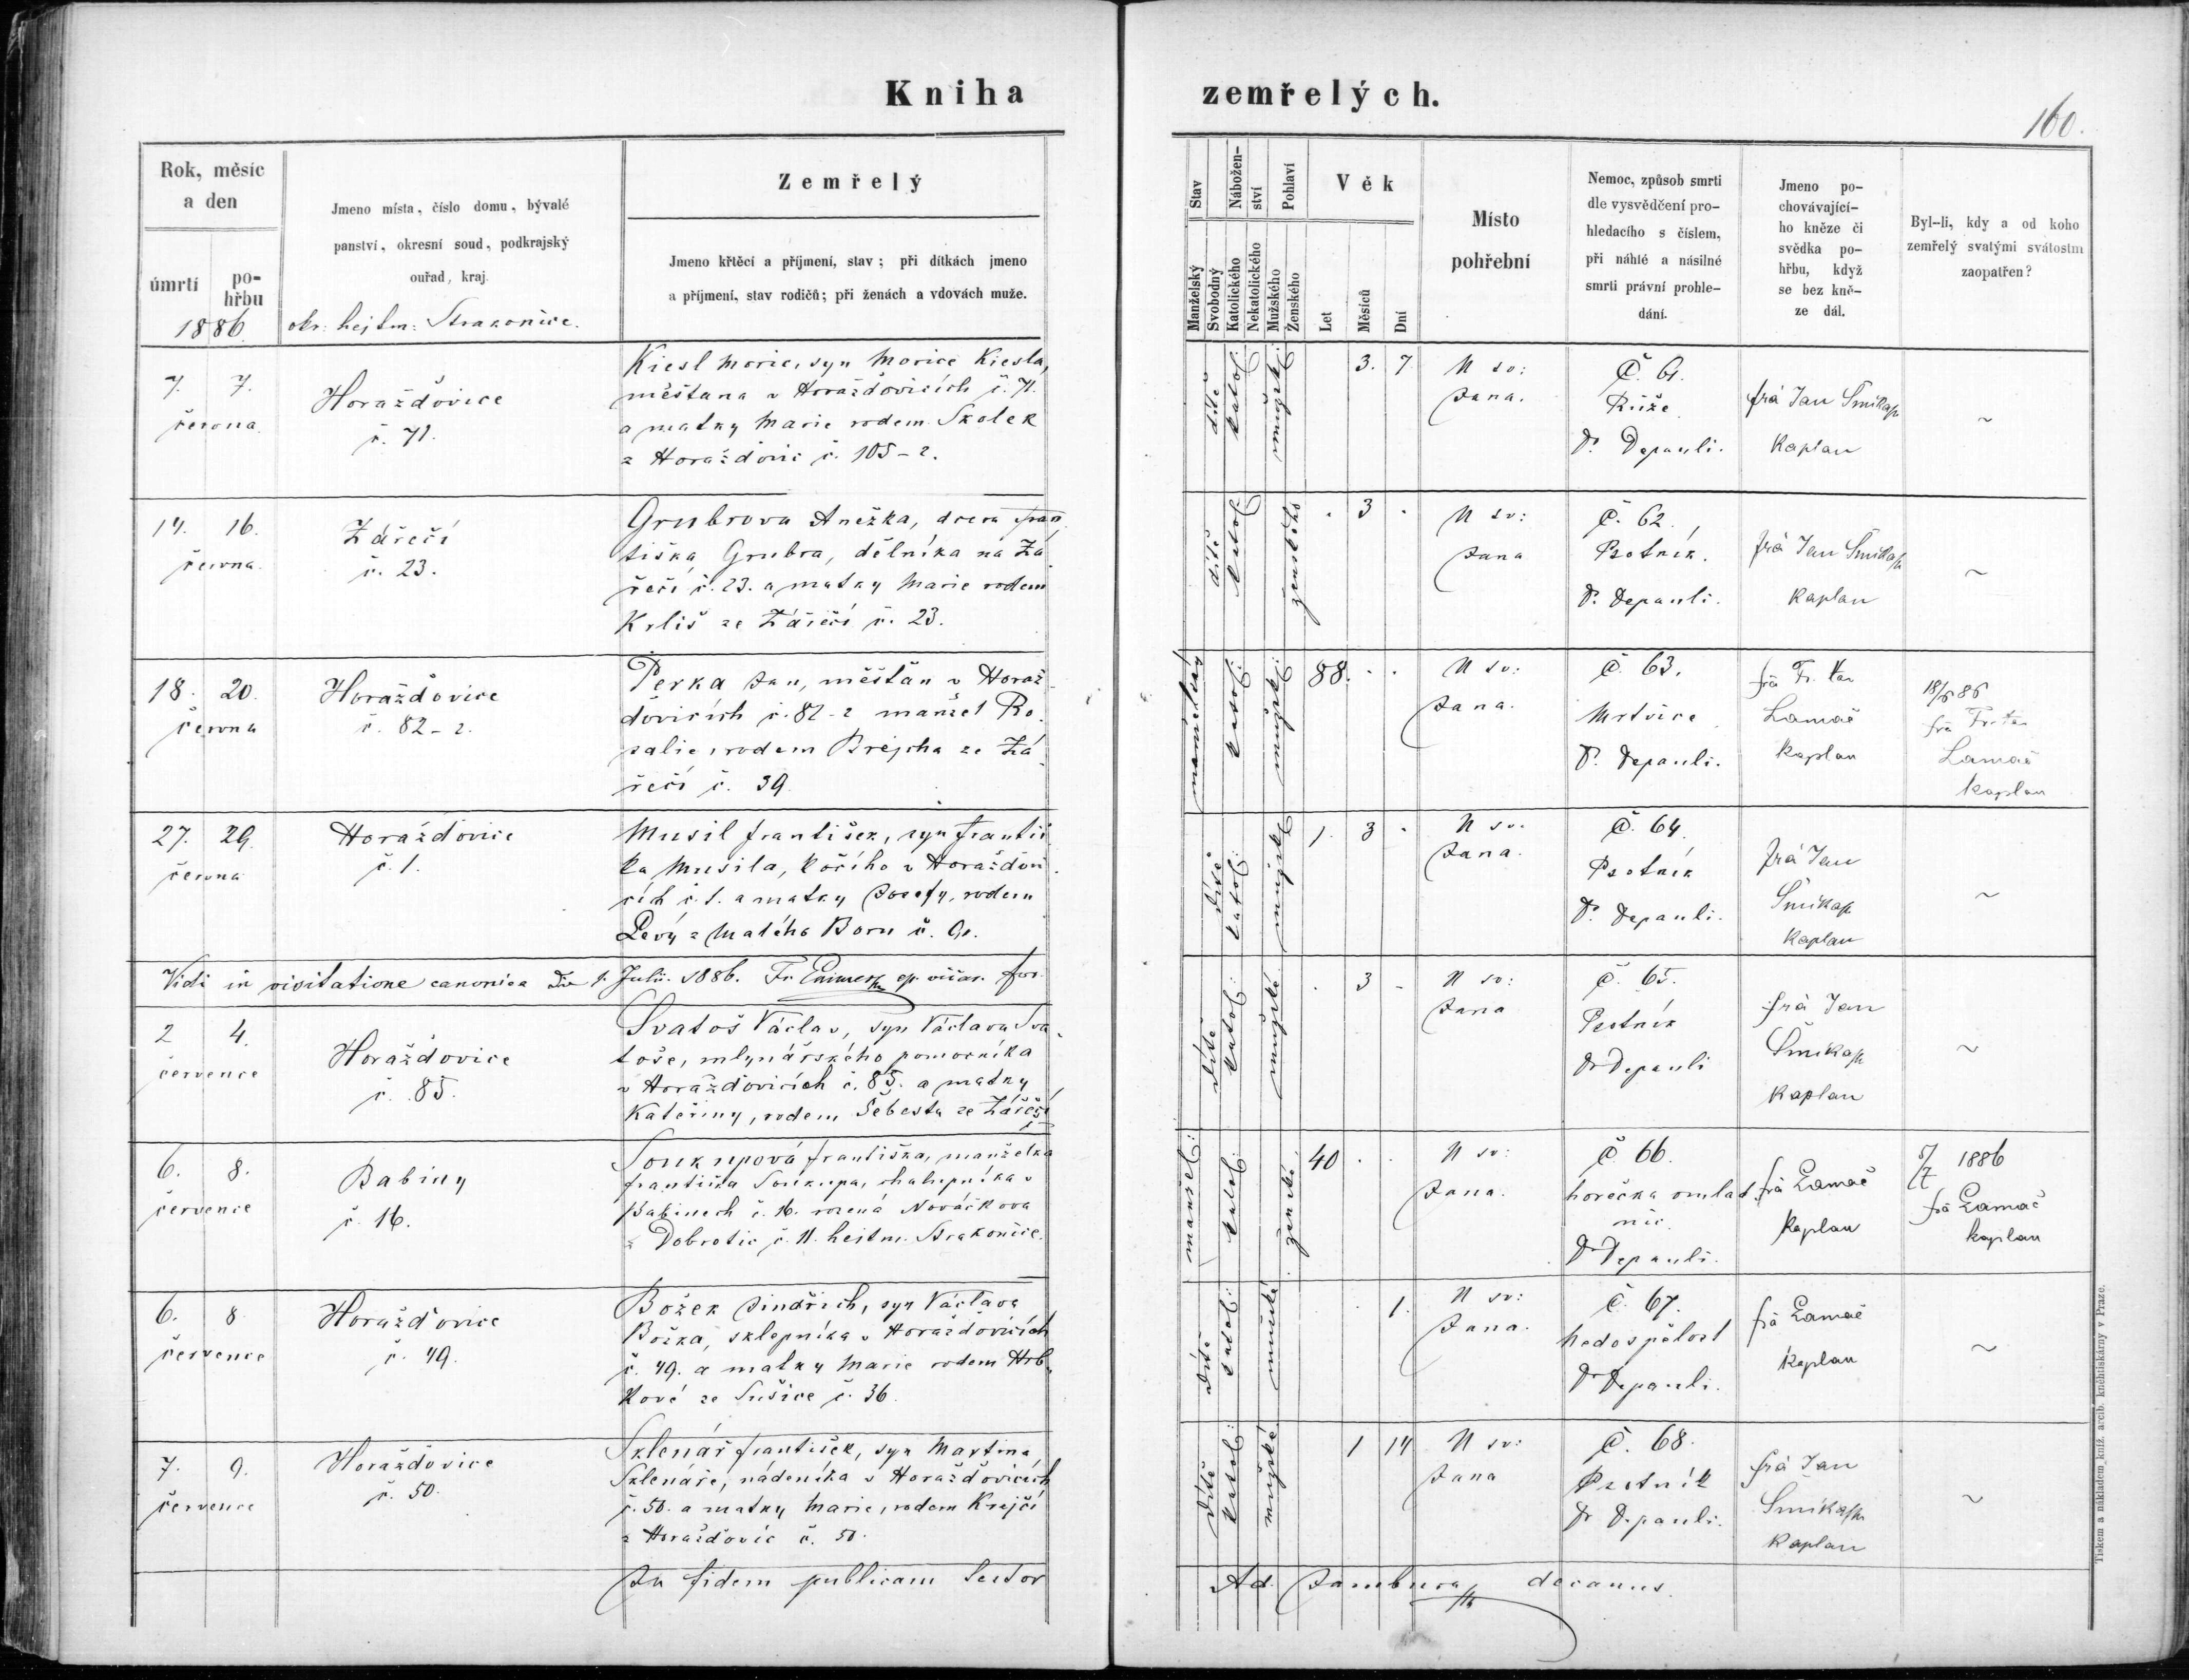 Kniha zemřelých.
160.
Rok, měsíc
a den
úmrtí
po-
hřbu
1886
Jmeno místa, číslo domu, bývalé
panství, okresní soud, podkrajský
ouřad, kraj.
okr: hejtm: Strakonice.
Zemřelý
Jmeno křtěcí a příjmení, stav; při dítkách jmeno
a příjmení, stav rodičů; při ženách a vdovách muže.
Stav
Manželský
Svobodný
Nábožen-
ství
Katolického
Nekatolického
Pohlaví
Mužského
Ženského
Věk
Let
Měsíců
Dní
Místo
pohřební
Nemoc, způsob smrti
dle vysvědčení pro-
hledacího s číslem,
při náhlé a násilné
smrti právní prohle-
dání.
Jmeno po-
chovávající-
ho kněze či
svědka po-
hřbu, když
se bez kně-
ze dál.
Byl-li, kdy a od koho
zemřelý svatými svátostmi
zaopatřen?
7. 7.
června
Horažďovice
č. 71.
Kiesl Moric, syn Morice Kiesla,
měšťana v Horažďovicích č. 71.
a matky Marie rodem Skolek
z Horažďovic č. 105-2.
dítě
katol:
mužsk:
3. 7
U sv:
Jana.
Č. 61.
Růže
Dr. Depauli.
frà Jan Šmíkap
Kaplan
~
14. 16.
června
Zářečí
č. 23.
Grubrova Anežka, dcera Fran
tiška Grubra, dělníka na Zá
řečí č. 23. a matky Marie rodem
Krliš ze Zářečí č. 23.
dítě
katol:
ženského
. 3 .
U sv:
Jana
Č. 62.
Psotník.
Dr. Depauli.
frà Jan Šmíkap
Kaplan
~
18. 20.
června
Horažďovice
č. 82-2.
Perka Jan, měšťan v Horaž
ďovicích č. 82-2 manžel Ro
salie, rodem Brejcha ze Zá
řečí č. 39.
manželský
katol:
mužsk:
88. . .
U sv:
Jana.
Č. 63.
Mrtvice
Dr. Depauli.
frà Fr. Xav
Lamač
Kaplan
18/6 86
frà Fr. Xav
Lamač
Kaplan
27. 29.
června
Horažďovice
č. 1.
Musil František, syn Františ
ka Musila, kočího v Horažďovi
cích č. 1. a matky Josefy, rodem
Levý z Malého Boru č.
dítě
katol:
mužsk:
1. 3 .
U sv:
Jana.
Č. 64.
Psotník
Dr. Depauli.
frà Jan
Šmíkap
Kaplan
~
Vidi in visitatione canonica die 1. Julii. 1886. Fr. ep. vicar. for.
2 4.
července
Horažďovice
č. 85.
Svatoš Václav, syn Václava Sva
toše, mlynářského pomocníka
v Horažďovicích č. 85. a matky
Kateřiny, rodem Šebesta ze Zářečí
dítě
katol:
mužské
. 3 -
U sv:
Jana
Č. 65.
Psotník
Dr Depauli
frà Jan
Šmíkap
Kaplan
~
6. 8.
července
Babiny
č. 16.
Soukupová Františka, manželka
Františka Soukupa, chalupníka v
Babinech č. 16. rozená Nováčkova
z Dobrotic č. 11. hejtm. Strakonice.
manžel:
katol:
ženské
40 . .
U sv:
Jana.
Č. 66.
horečka omlad
nic.
Dr Depauli.
frà Lamač
Kaplan
5/7 1886
frà Lamač
Kaplan
6. 8
července
Horažďovice
č. 49.
Božek Jindřich, syn Václava
Božka, sklepníka v Horažďovicích
č. 49. a matky Marie rodem Hrb
kové ze Sušice č. 36.
dítě
katol:
mužské
. 1.
U sv:
Jana.
Č. 67.
Nedospělost
Dr Depauli.
frà Lamač
Kaplan
~
7. 9.
července
Horažďovice
č. 50.
Sklenář František, syn Martina
Sklenáře, nádeníka v Horažďovicích
č. 50. a matky Marie, rodem Krejčí
z Horažďovic č. 50.
dítě
katol:
mužské
1 14
U sv:
Jana
Č. 68.
Psotník
Dr Depauli.
frà Jan
Šmíkap
Kaplan
~
In fidem publicam testor
Ad. Jambura decanus.
Tiskem a nákladem kníž. arcib. knihtiskárny v Praze.